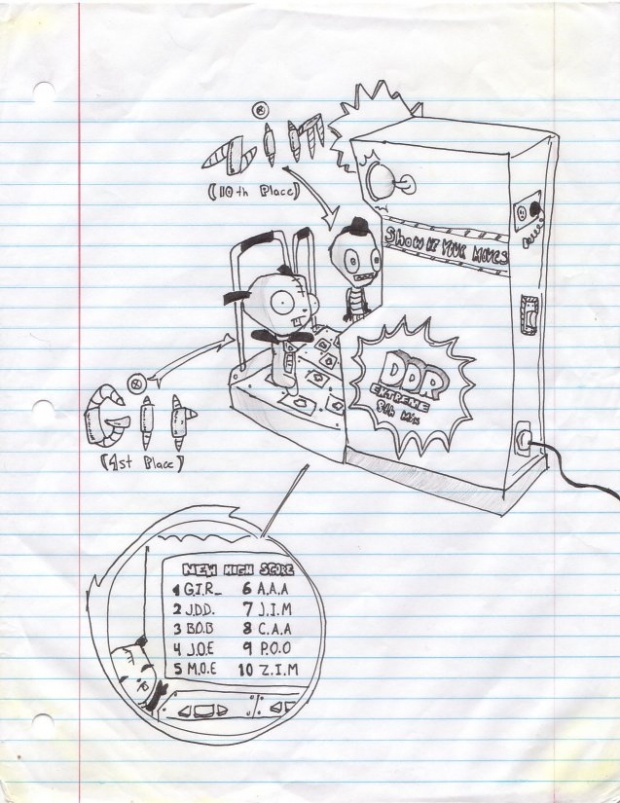 Zim
(10th Place)
Show us Your Moves
DDR
EXTREME
Gir
(1st Place)
NEW HIGH SCORE
1 G.I.R_ 6 A.A.A
2 J.D.D. 7 J.I.M
3 B.O.B 8 C.A.A
4 J.O.E 9 P.O.O
5 M.O.E 10 Z.I.M